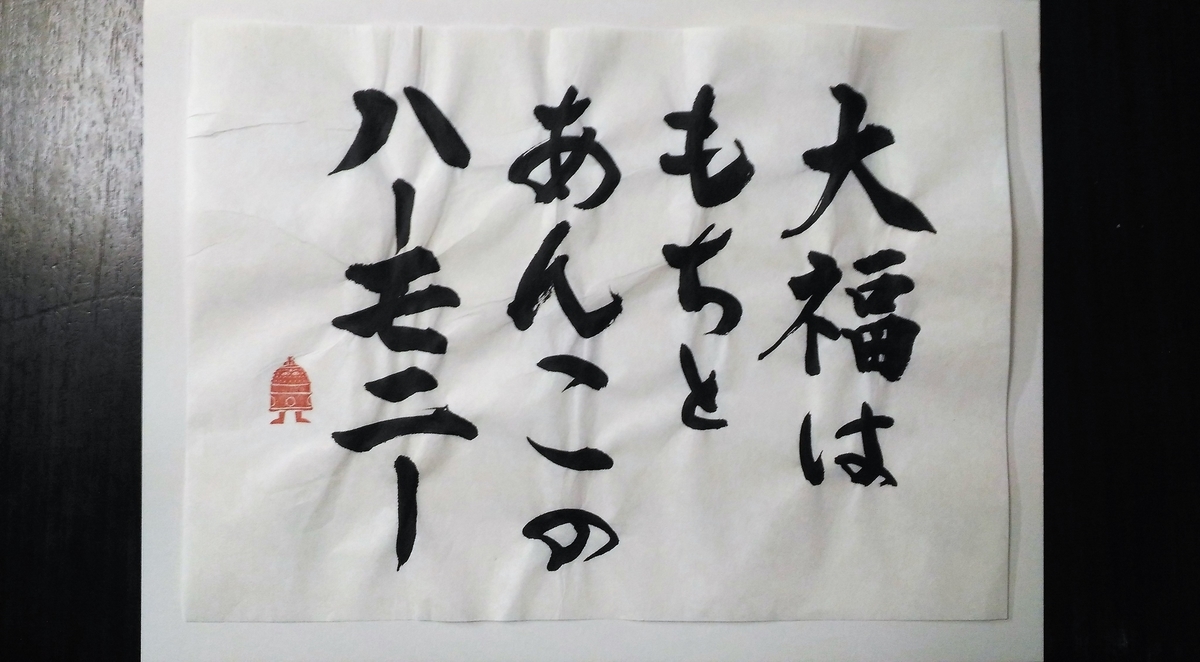 大福は
もちと
あんこの
ハーモニー